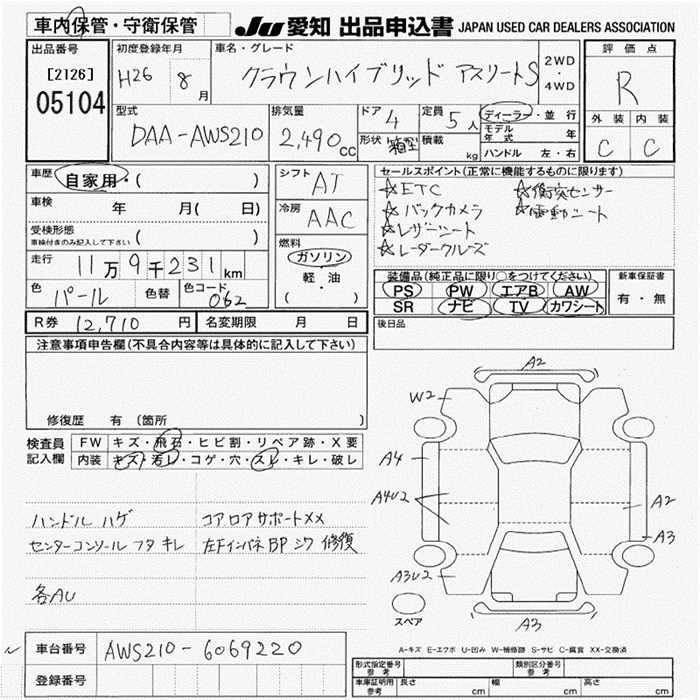 車内保管・守衛保管
JU 愛知 出品申込書 JAPAN USED CAR DEALERS ASSOCIATION
出品番号
[2126]
05104
初度登録年月
H26 8月
車名・グレード
クラウンハイブリッド アスリートS
2WD
・
4WD
評価点
R
外装 内装
C C
型式
DAA-AWS210
排気量
2,490cc
ドア 4
形状 箱型
定員 5人
積載 kg
ディーラー・並行
モデル年式 年
ハンドル 左・右
車歴
自家用・( )
車検 年 月( 日)
受検形態
車検付きのみ記入して下さい ( )
走行 11万9千231km
色 パール
色替
色コード 062
シフト AT
冷房 AAC
燃料
ガソリン
軽・油
( )
セールスポイント(正常に機能するものに限ります)
☆ETC ☆衝突センサー
☆バックカメラ ☆電動シート
☆レザーシート
☆レーダークルーズ
装備品(純正品に限り○をつけてください)
PS PW エアB AW
SR ナビ TV カワシート
新車保証書
有・無
R券 12,710円 名変期限 月 日
後日品
注意事項申告欄(不具合内容等は具体的に記入して下さい)
修復歴 有 〔箇所 〕
検査員記入欄
FW キズ・飛石・ヒビ割・リペア跡・X要
内装 キズ・汚レ・コゲ・穴・スレ・キレ・破レ
ハンドル ハゲ コアロアサポートXX
センターコンソール フタ キレ 左Fインパネ BP シワ 修復
各AU
A2
W2
A4
A4U2
A2
A3
A3U2
A3
スペア
車台番号 AWS210-6069220
登録番号
A-キズ E-エクボ U-凹み W-補修跡 S-サビ C-腐食 XX-交換済
形式指定番号 参考
類別区分番号 参考
車庫証明用 参考 長さ cm 幅 cm 高さ cm